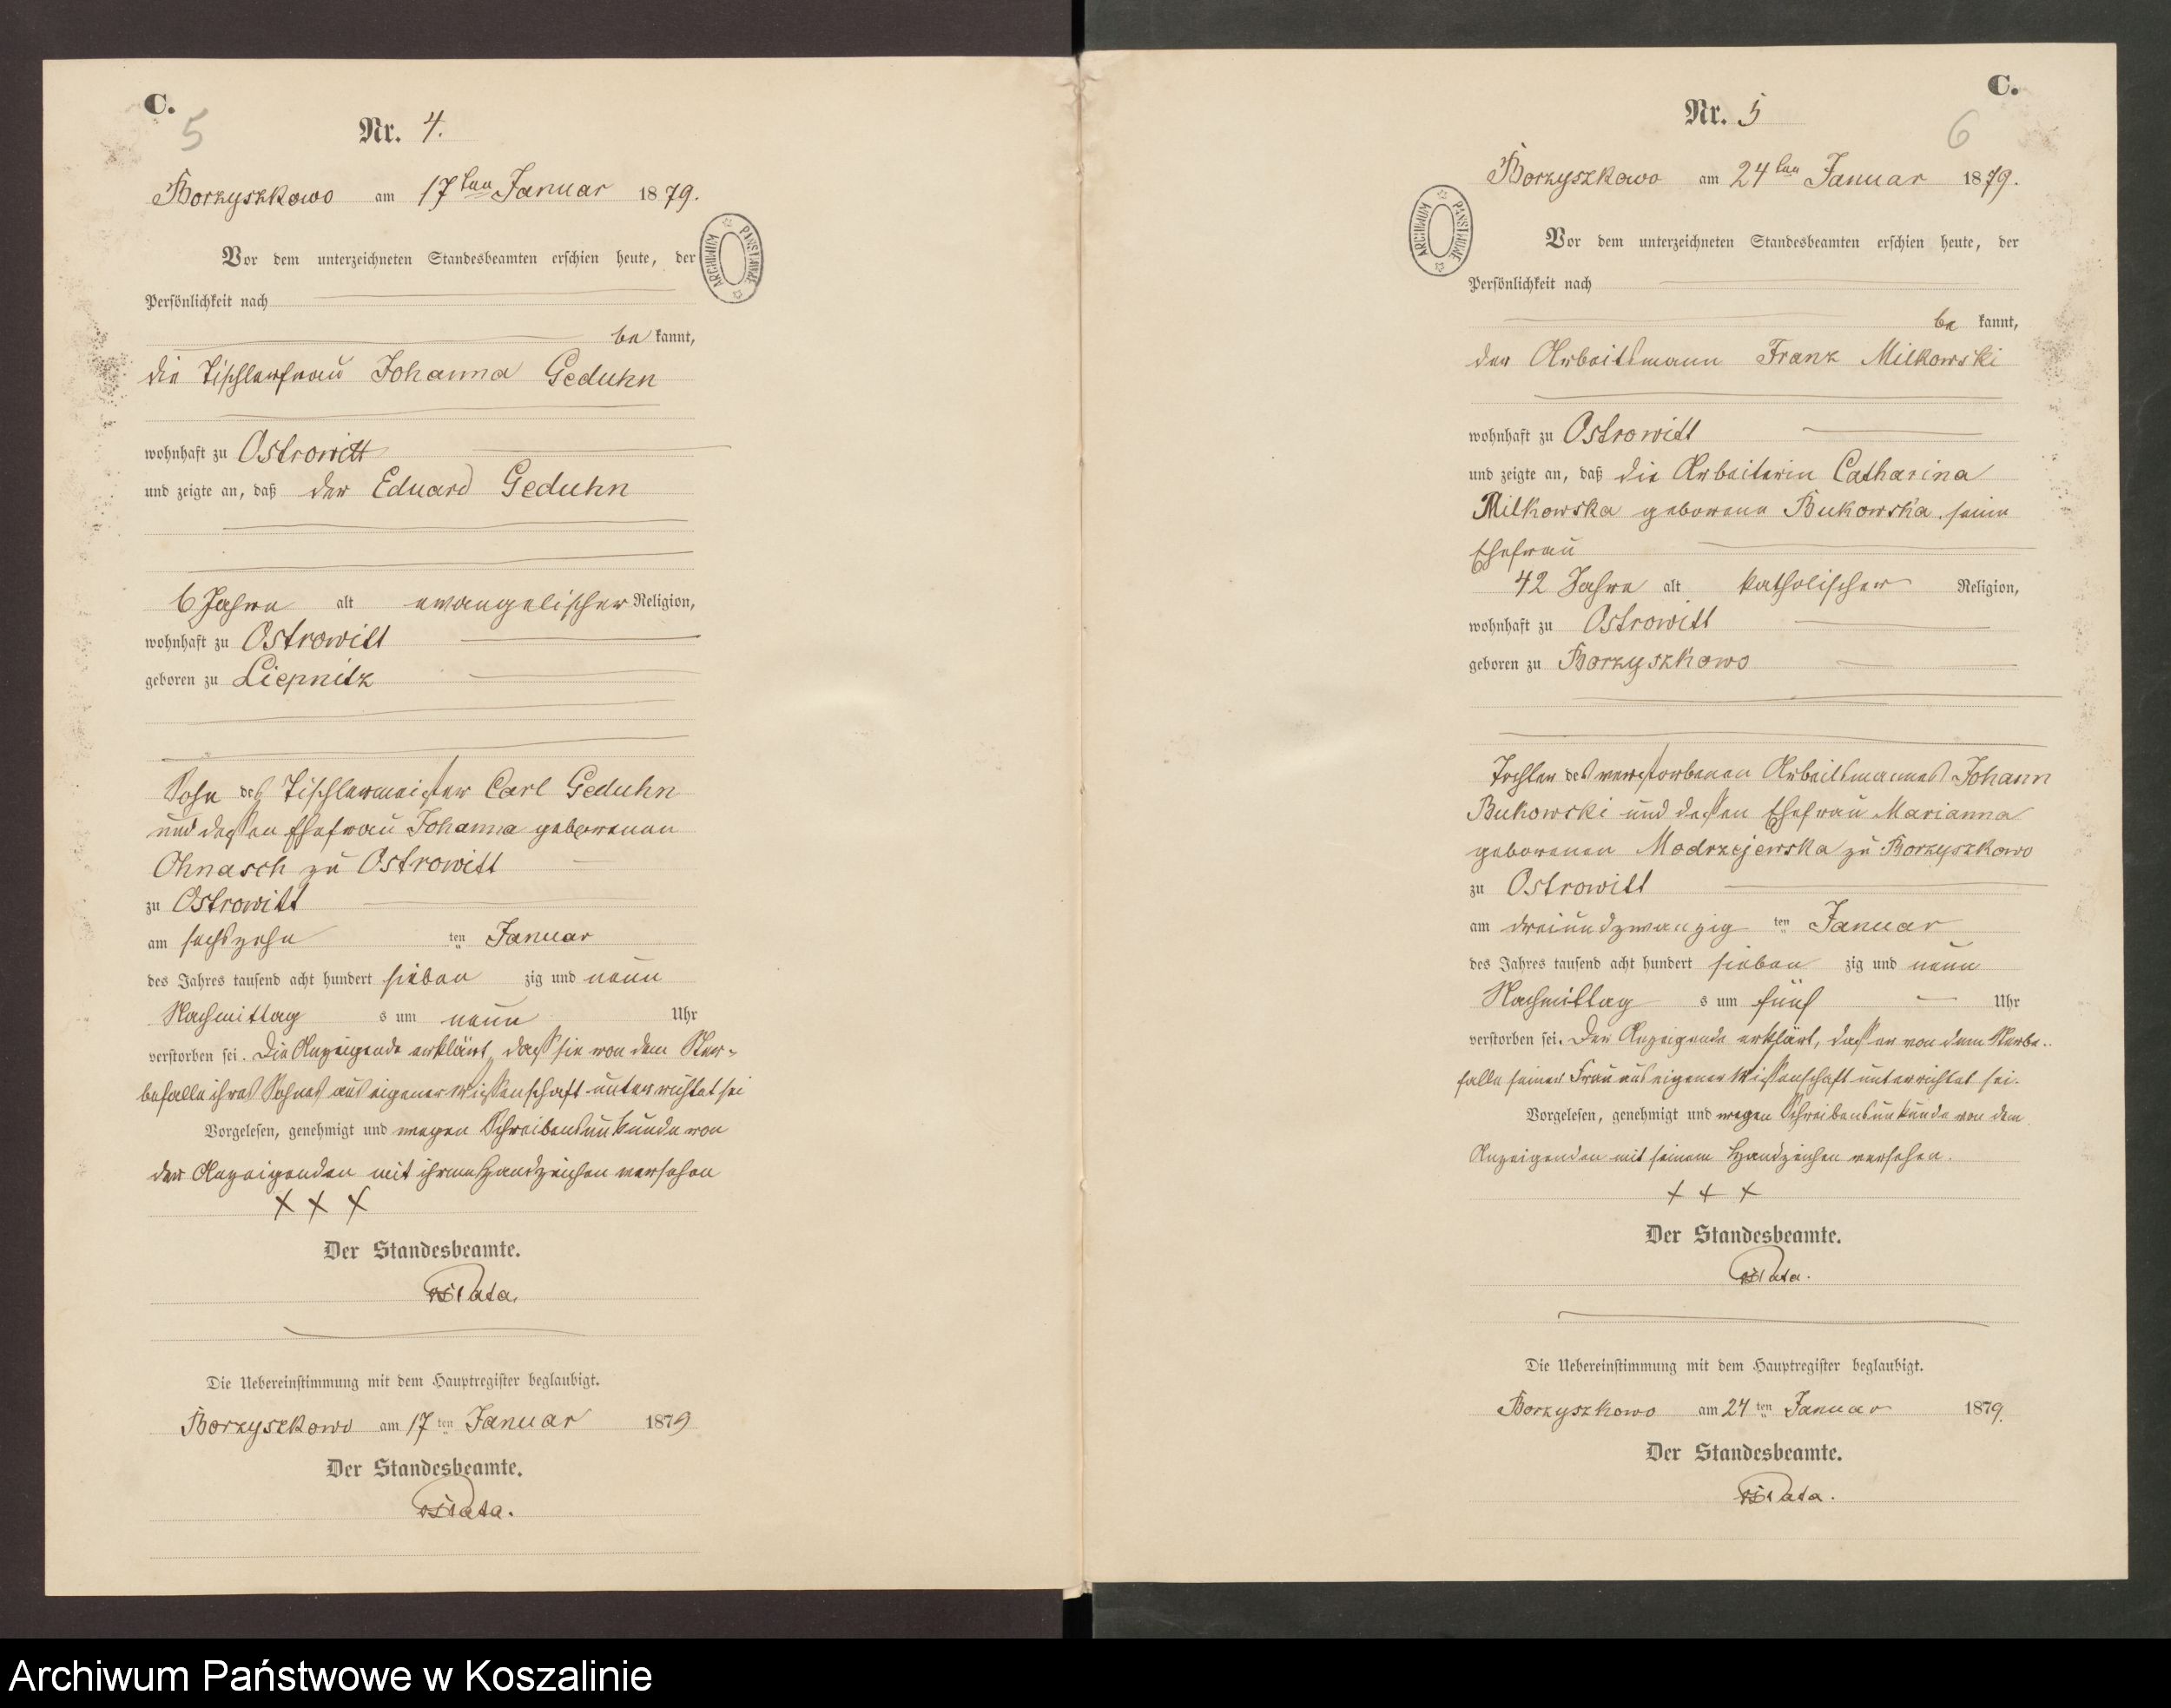 C.
5
Nr. 4.
Borzyszkowo am 17ten Januar 1879.
Vor dem unterzeichneten Standesbeamten erschien heute, der
Persönlichkeit nach
be kannt,
die Tischlerfrau Johanna Geduhn
wohnhaft zu Ostrowitt
und zeigte an, daß der Eduard Geduhn
6 Jahre alt evangelischer Religion,
wohnhaft zu Ostrowitt
geboren zu Liepnitz
Sohn des Tischlermeister Carl Geduhn
und dessen Ehefrau Johanna geborenen
Ohnasch zu Ostrowitt
zu Ostrowitt
am sechszehn ten Januar
des Jahres tausend acht hundert sieben zig und neun
Nachmittag s um neun Uhr
verstorben sei. Die Anzeigende erklärt, dass sie von dem Ster-
befalle ihres Sohnes aus eigener Wissenschaft unterrichtet sei
Vorgelesen, genehmigt und wegen Schreibensunkunde von
der Anzeigenden mit ihrem Handzeichen versehen
X X X
Der Standesbeamte.
Die Uebereinstimmung mit dem Hauptregister beglaubigt.
Borzyszkowo am 17 ten Januar 1879
Der Standesbeamte.
ARCHIWUM PAŃSTWOWE
C.
6
Nr. 5
Borzyszkowo am 24ten Januar 1879.
Vor dem unterzeichneten Standesbeamten erschien heute, der
Persönlichkeit nach
be kannt,
der Arbeitsmann Franz Milkowski
wohnhaft zu Ostrowitt
und zeigte an, daß die Arbeiterin Catharina
Milkowska geborene Bukowska, seine
Ehefrau
42 Jahre alt katholischer Religion,
wohnhaft zu Ostrowitt
geboren zu Borzyszkowo
Tochter des verstorbenen Arbeitsmannes Johann
Bukowski und dessen Ehefrau Marianna
geborenen Modrzejewska zu Borzyszkowo
zu Ostrowitt
am dreiundzwanzig ten Januar
des Jahres tausend acht hundert sieben zig und neun
Nachmittag s um fünf Uhr
verstorben sei. Der Anzeigende erklärt, dass er von dem Sterbe-
falle seiner Frau aus eigener Wissenschaft unterrichtet sei.
Vorgelesen, genehmigt und wegen Schreibensunkunde von dem
Anzeigenden mit seinem Handzeichen versehen.
+ + +
Der Standesbeamte.
Die Uebereinstimmung mit dem Hauptregister beglaubigt.
Borzyszkowo am 24 ten Januar 1879.
Der Standesbeamte.
ARCHIWUM PAŃSTWOWE
Archiwum Państwowe w Koszalinie